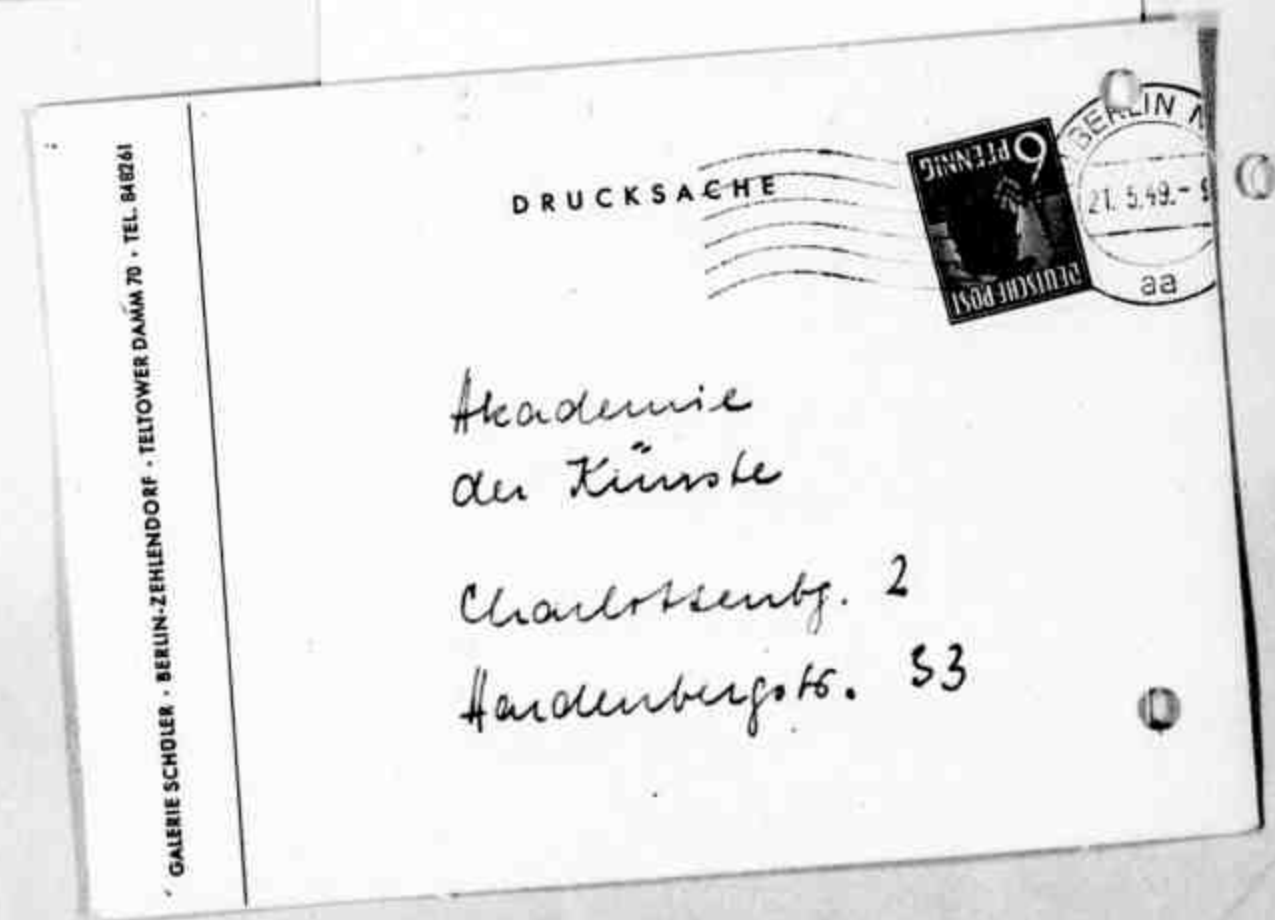 GALERIE SCHÜLER · BERLIN-ZEHLENDORF · TELTOWER DAMM 70 · TEL. 848261
DRUCKSACHE
6
PFENNIG
DEUTSCHE POST
BERLIN
21. 5.49.-
aa
Akademie
der Künste
Charlottenbg. 2
Hardenbergstr. 33